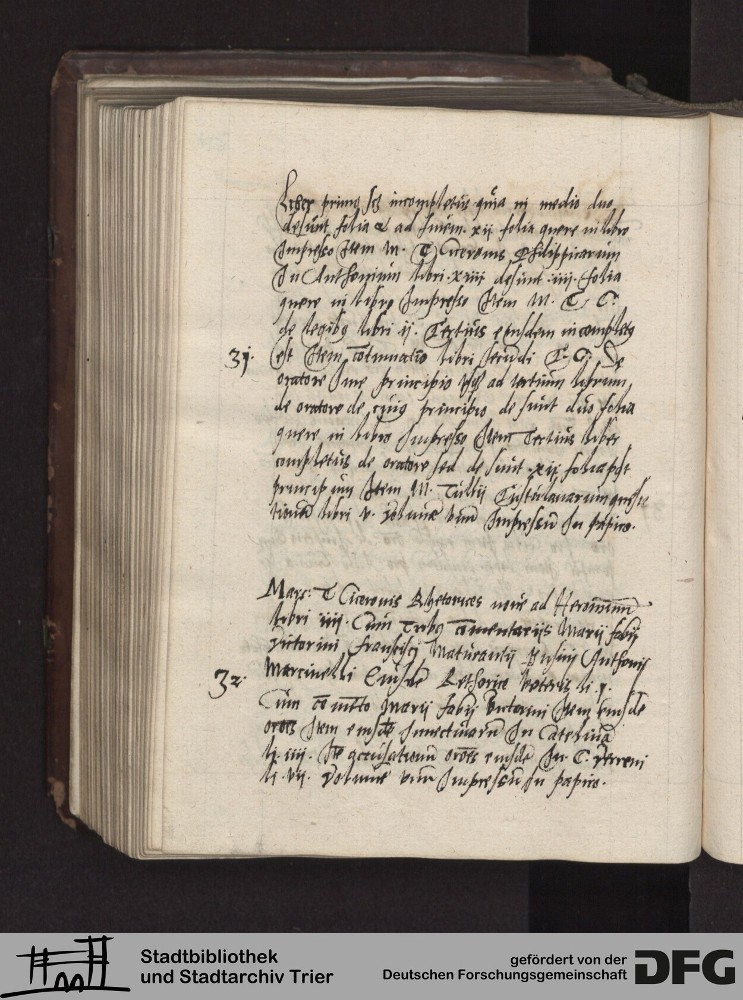 Liber primus sed incompletus quia in medio duo
desunt folia & ad finem xij folia quere in libro
Impresso Item M. T Ciceronis Philippicarum
In Anthonium libri xiiij desunt iiij folia
quere in libro Impresso Item M. T. C.
de legibus libri ij. Tertius eiusdem incompletus
31. est Item continuatio libri secundi T. C. De
oratore sine principio usque ad tertium librum
de oratore de cuius principio desunt duo folia
quere in libro Impresso Item Tertius liber
completus de oratore sed desunt xij folia
principium Item M. Tullii Tusculanarum
libri v. volumine vnum Impressum In papiro.
Marc: T Ciceronis Rhetorices noue ad Herennium
libri iiij. Cum Tribus comentarijs Marij fabij
Victorini, Francisci Maturantij Anthonij
32. Mancinelli Eiusdem Rethorice veteris li
Cum Marij fabij Victorini Item eiusdem
Item eiusdem Inuectiuarum In Catelinam
li. iiij. Ite accusationum eiusdem In C. Verrem
li. vij. Volumine vnum Impressum In papiro.
Stadtbibliothek
und Stadtarchiv Trier
gefördert von der
Deutschen Forschungsgemeinschaft
DFG